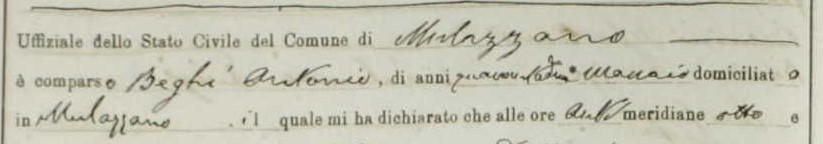 Uffiziale dello Stato Civile del Comune di Mulazzano
è comparso Beghi Antonio, di anni domiciliato
in Mulazzano, il quale mi ha dichiarato che alle ore anti meridiane otto e